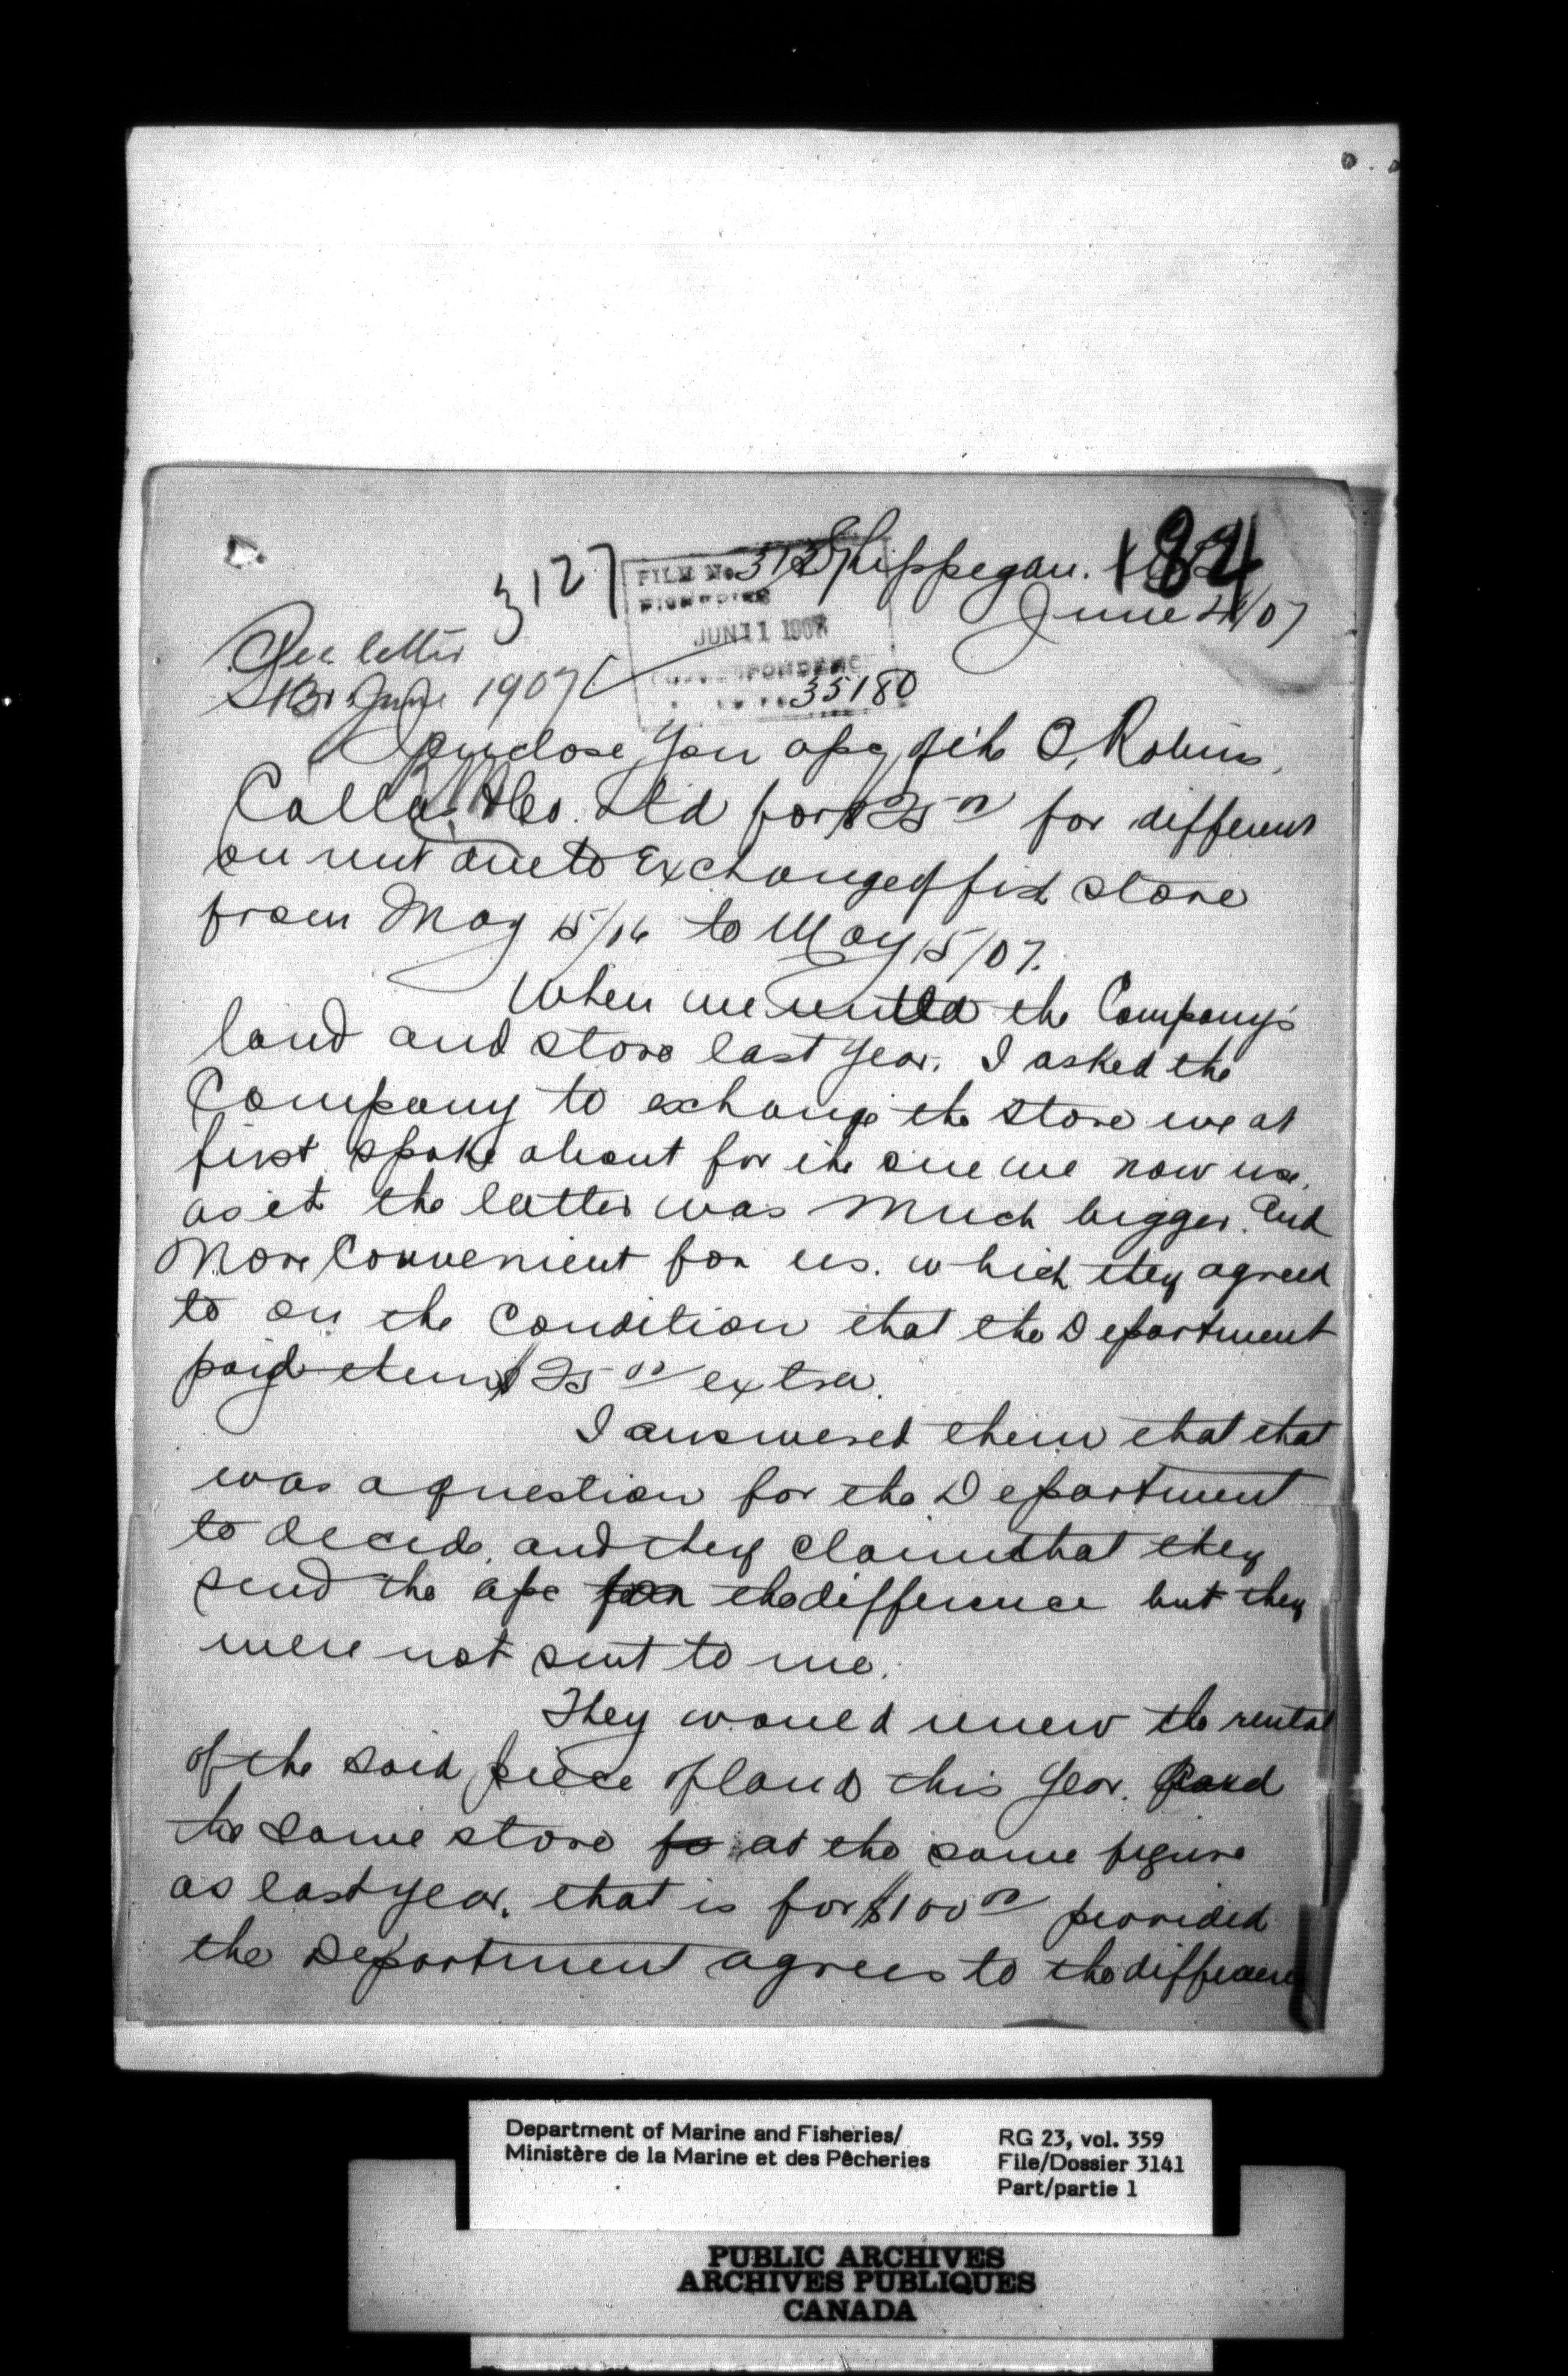 184
3127
FILE No. 3127
Shippegan.
FISHERIES
June 4/07
JUN 11 1907
See letter
13 June 1907
CORRESPONDENCE
35180
I enclose you a/c of the C, Robin,
Collas Co. Ltd for $25 00 for different
on rent due to Exchange of fish store
from May 15/06 to May 15/07.
When we rented the Company's
land and store last year. I asked the
Company to exchange the store we at
first spoke about for the one we now use.
as it the latter was much bigger. And
More Convenient for us. which they agreed
to on the Condition that the Department
paid them $25 00 extra.
I answered them that that
was a question for the Department
to decide. and they claim that they
send the a/c for the difference but they
were not sent to me.
They would renew the rental
of the said piece of land this year. and
the same store fo at the same figure
as last year. that is for $100 00 provided
the Department agrees to the difference
Department of Marine and Fisheries/
Ministère de la Marine et des Pêcheries
RG 23, vol. 359
File/Dossier 3141
Part/partie 1
PUBLIC ARCHIVES
ARCHIVES PUBLIQUES
CANADA